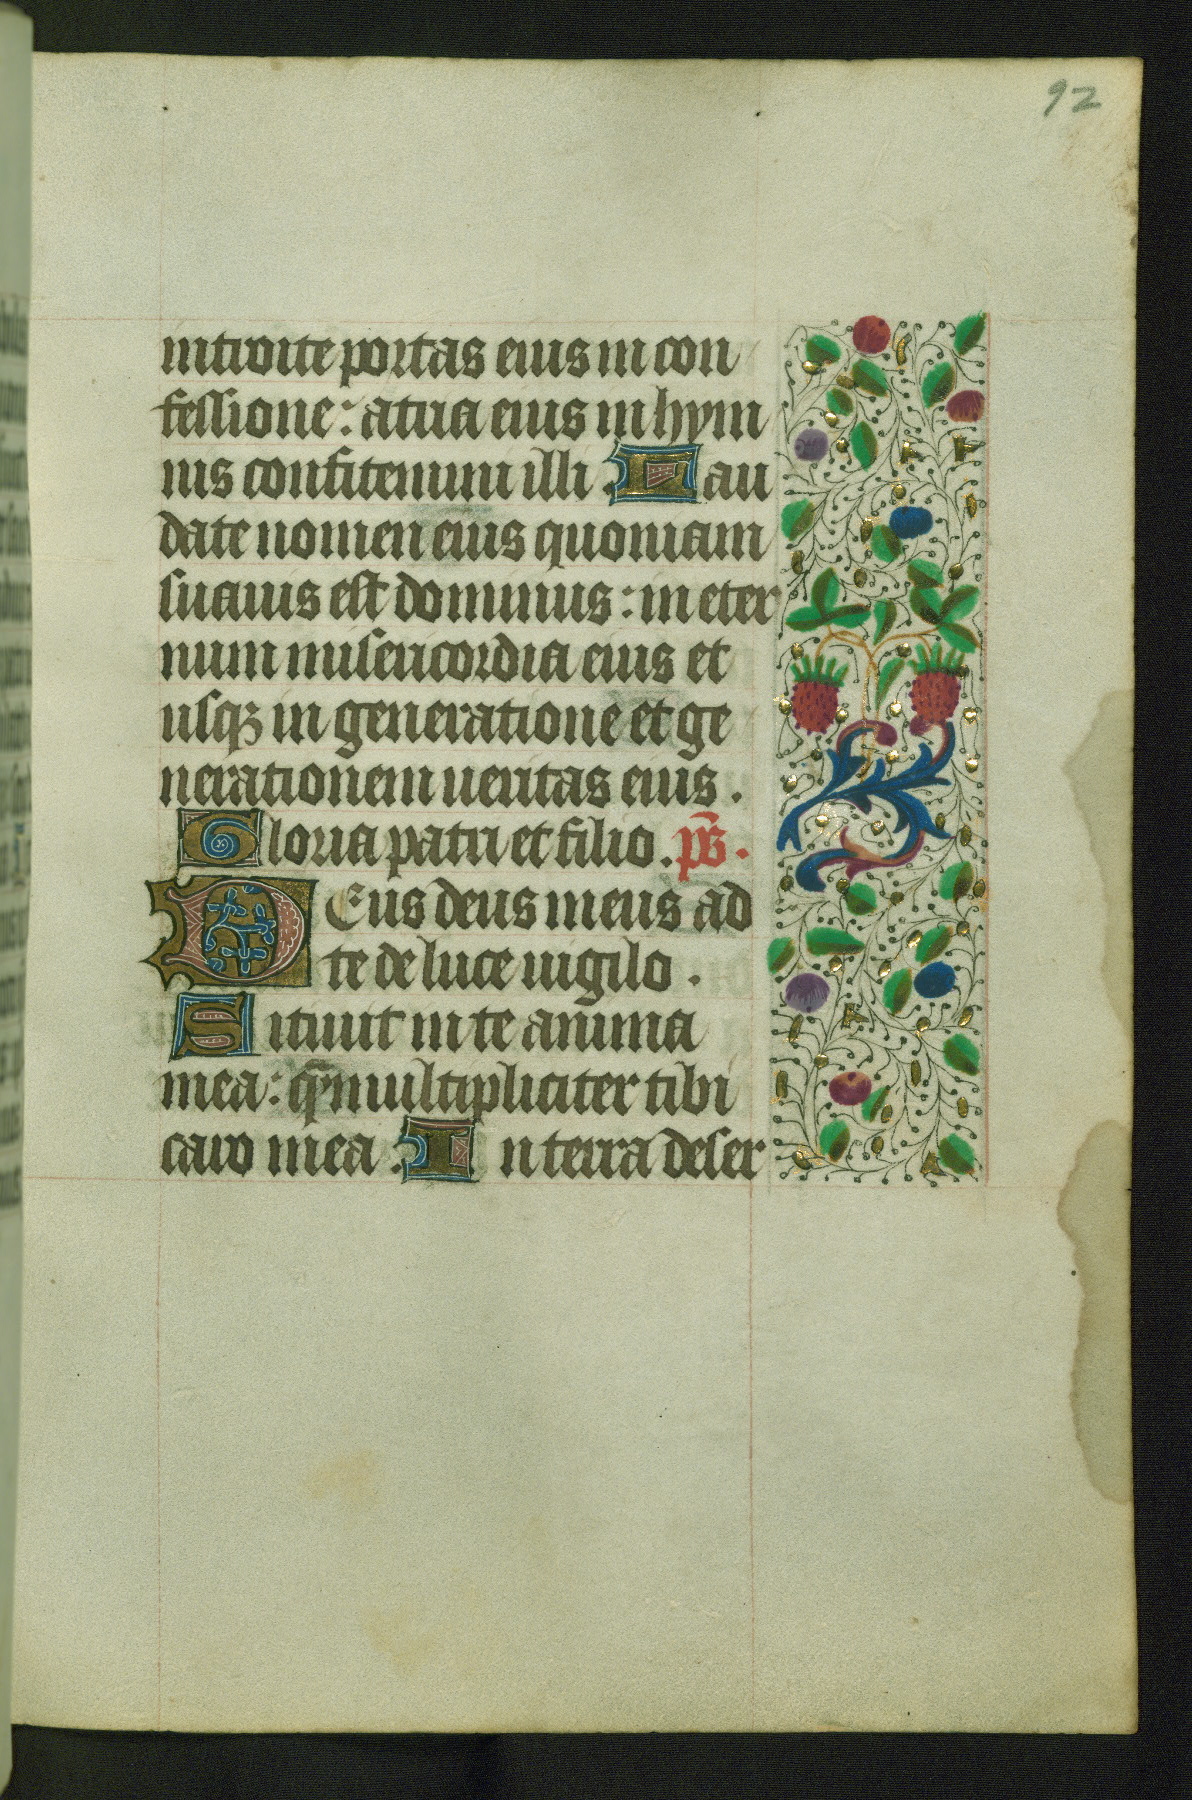 92
introite portas eius in con
fessione: atria eius in hym
nis confitemini illi. Lau
date nomen eius quoniam
suauis est dominus: in eter
num misericordia eius et
usqꝫ in generatione et ge
nerationem ueritas eius.
Gloria patri et filio. ps̄.
DEus deus meus ad
te de luce uigilo.
Sitiuit in te anima
mea: q̄ multipliciter tibi
caro mea. In terra deser